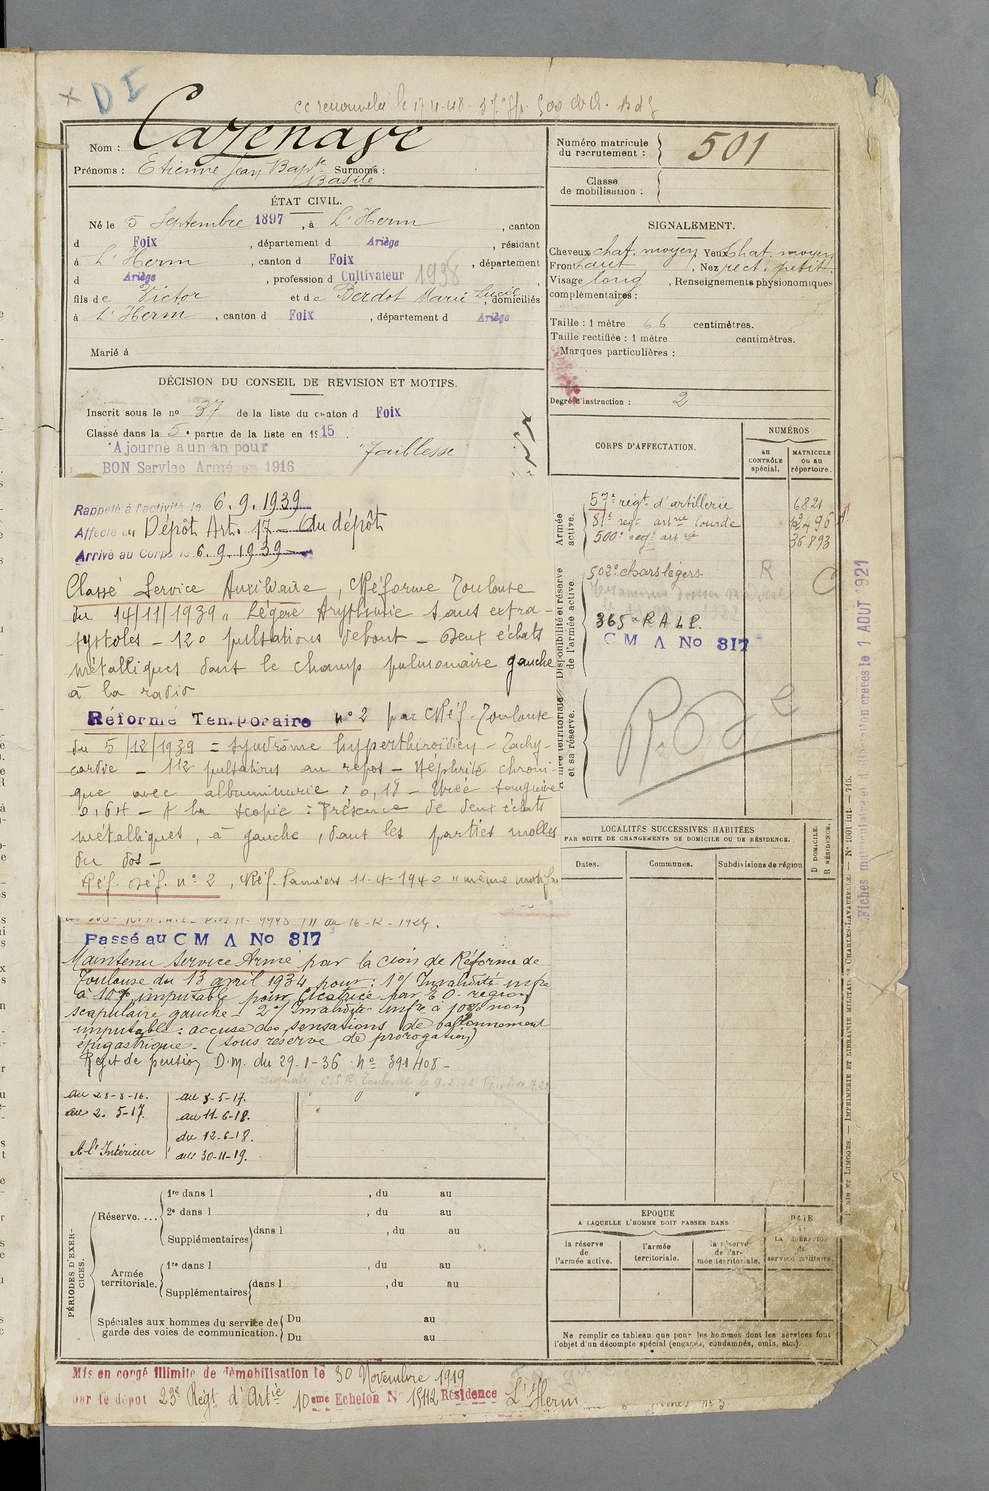 DI
cc renouvelée le
Nom : Cazenave
Prénoms : Etienne Jean Bapte Surnoms :
Basile
ÉTAT CIVIL.
Né le 5 Septembre 1897, à L'Herm, canton
d Foix, département d Ariège, résidant
à L'Herm, canton d Foix, département
d Ariège, profession d Cultivateur 1938,
fils de Victor et de Berdot Marie Lucie, domiciliés
à L'Herm, canton d Foix, département d Ariège
Marié à
DÉCISION DU CONSEIL DE REVISION ET MOTIFS.
Inscrit sous le no 37 de la liste du canton d Foix
Classé dans la 5e partie de la liste en 1915
Ajourné à un an pour "faiblesse"
BON Service Armé en 1916
Rappelé à l'activité le 6.9.1939
Affecté au Dépôt Art. 17 du dépôt
Arrivé au Corps le 6.9.1939
Classé Service Auxiliaire, Réforme Toulouse
du 14/11/1939 " Légère Arythmie sans extra-
systoles - 120 pulsations debout - deux éclats
métalliques dans le champ pulmonaire gauche
à la radio
Réformé Temporaire n°2 par Réf. Toulouse
du 5/12/1939 = Syndrôme hyperthiroïdien - Tachy-
cardie - 112 pulsations au repos - Néphrite chroni-
que avec albuminurie : 0,18 - Urée sanguine
0,64 - A la scopie : Présence de deux éclats
métalliques, à gauche, dans les parties molles
du dos -
Réf. déf. n° 2, Réf. Pamiers 11-4-1940 "même motifs
du 16-12-1924.
Passé au C M A No 817
Maintenu Service Armé par la Cion de Réforme de
Toulouse du 13 avril 1934 pour : 1°/ Invalidité infre
à 10% imputable pour cicatrice par E.O. région
scapulaire gauche - 2°/ Invalidité infre à 10% non
imputable : accuse des sensations de ballonnement
épigastrique. (sous réserve de prorogation)
Rejet de pension D.M. du 29-1-36 n° 391408 -
du 28-8-16. du 3-5-17.
au 2.5-17. au 11-6-18.
du 12-6-18.
A l'Intérieur au 30-11-19.
PÉRIODES D'EXERCICES.
Réserve....
1re dans l , du au
2e dans l , du au
Supplémentaires dans l , du au
Armée territoriale.
1re dans l , du au
Supplémentaires dans l , du au
Spéciales aux hommes du service de garde des voies de communication.
Du au
Du au
Mis en congé illimité de démobilisation le 30 Novembre 1919
par le dépôt 23e Régt d'Artie 10eme Echelon N° 15112 Résidence L'Herm
Numéro matricule du recrutement : 501
Classe de mobilisation :
SIGNALEMENT.
Cheveux chat. moyen Yeux chat. moyen
Front haut, Nez rect. petit.
Visage long, Renseignements physionomiques
complémentaires :
Taille : 1 mètre 66 centimètres.
Taille rectifiée : 1 mètre centimètres.
Marques particulières :
Degré d'instruction : 2
CORPS D'AFFECTATION.
NUMÉROS
au CONTRÔLE spécial.
MATRICULE ou au répertoire.
Armée active.
57e régt. d'artillerie 6821
81e régt artie lourde
500e régt artie 36893
Disponibilité et réserve de l'armée active
502e chars légers. R C
365e R A L P.
C M A No 817
Armée territoriale et sa réserve.
LOCALITÉS SUCCESSIVES HABITÉES
PAR SUITE DE CHANGEMENTS DE DOMICILE OU DE RÉSIDENCE.
Dates.
Communes.
Subdivisions de région
D DOMICILE.
R RÉSIDENCE.
ÉPOQUE
A LAQUELLE L'HOMME DOIT PASSER DANS
la réserve de l'armée active.
l'armée territoriale.
la réserve de l'armée territoriale.
DATE de LA LIBÉRATION du service militaire.
Ne remplir ce tableau que pour les hommes dont les services font
l'objet d'un décompte spécial (engagés, condamnés, omis, etc.).
Fiches matriculaire et d'affectation créées le 1 AOUT 1921
IMPRIMERIE ET LIBRAIRIE MILITAIRE CHARLES-LAVAUZELLE. — N° 1001 int. — 715.